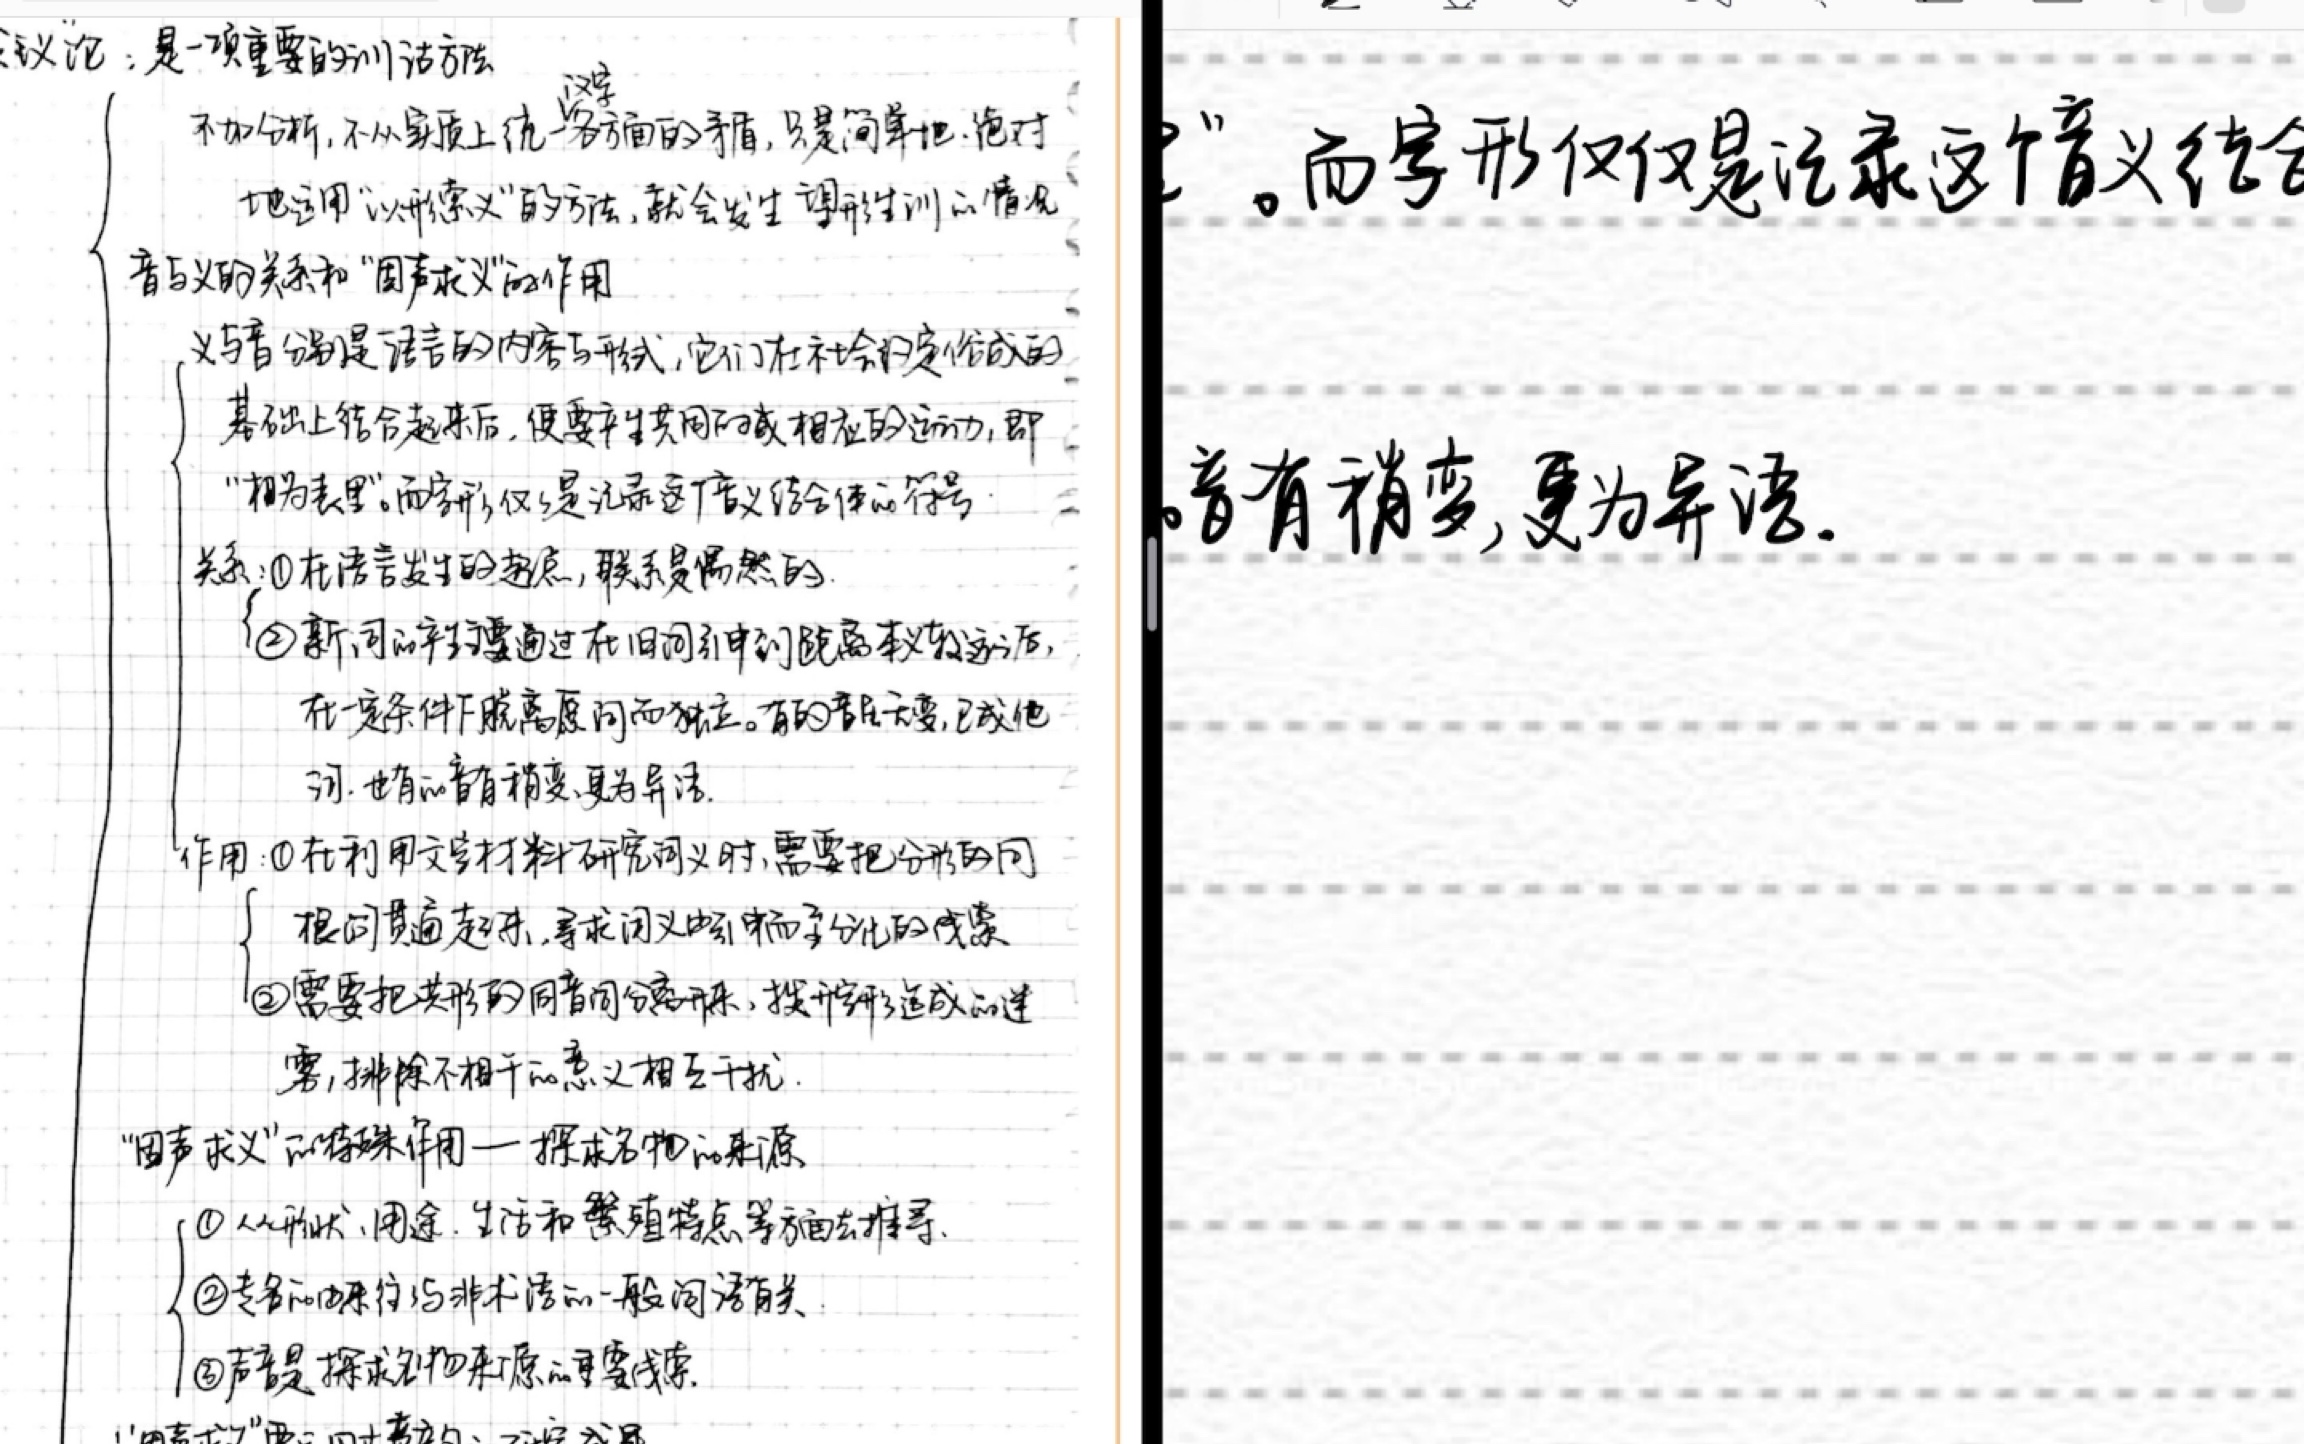 议论：是一项重要的训诂方法
汉字
不加分析，不从实质上统一各方面的矛盾，只是简单地、绝对
地运用“以形索义”的方法，就会发生望形生训的情况
音与义的关系和“因声求义”的作用
义与音分别是语言的内容与形式，它们在社会约定俗成的
基础上结合起来后，便要产生共同的或相应的运动，即
“相为表里”。而字形仅仅是记录这个音义结合体的符号.
关系：①在语言发生的起点，联系是偶然的.
②新词的产生主要通过在旧词引申到距离本义较远后，
在一定条件下脱离原词而独立。有的音虽无变，已成他
词．也有的音有稍变，更为异语.
作用：①在利用文字材料研究词义时，需要把分形的同
根词贯通起来，寻求词义由引申而至分化的线索
②需要把共形的同音词分离开来，拨开字形造成的迷
雾，排除不相干的意义相互干扰.
“因声求义”的特殊作用—探求名物的来源
①从形状、用途．生活和繁殖特点等方面去推寻.
②专名的由来往往与非术语的一般词语有关.
③声音是探求名物来源的重要线索.
“因声求义”
”。而字形仅仅是记录这个音义结合
音有稍变，更为异语.